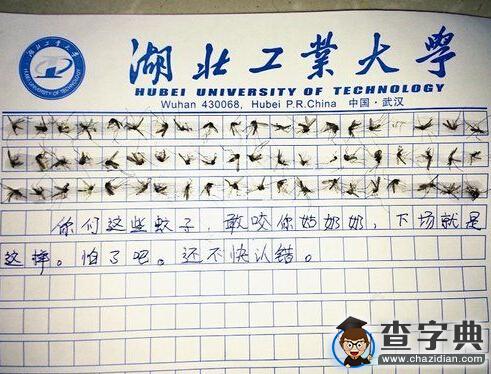 湖北工業大學
HUBEI UNIVERSITY OF TECHNOLOGY
Wuhan 430068, Hubei P.R.China 中国·武汉
你们这些蚊子，敢咬你姑奶奶，下场就是
这样。怕了吧。还不快认错。
查字典
www.chazidian.com